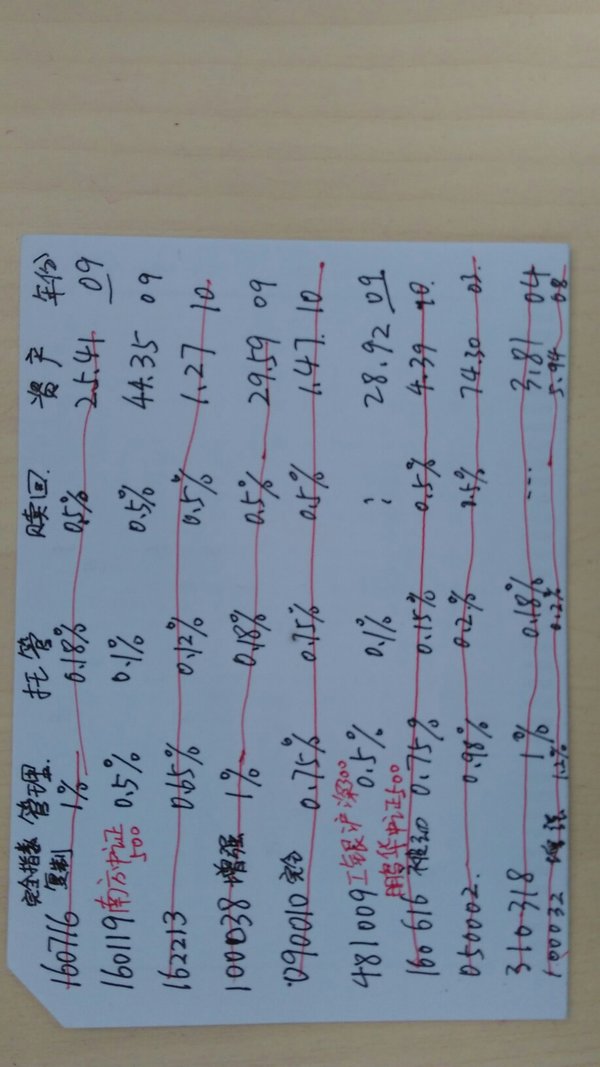 完全指数 管理 托管 赎回 资产 年份
160716 复制 1% 0.18% 0.5% 25.41 09
160119 南方中证500 0.5% 0.1% 0.5% 44.35 09
162213 0.65% 0.12% 0.5% 1.27 10
100038 增强 1% 0.18% 0.5% 29.59 09
090010 完全 0.75% 0.15% 0.5% 1.47 10
481009 工银沪深300 0.5% 0.1% ? 28.92 09
鹏华中证500
160616 被动 0.75% 0.15% 0.5% 4.39
050002 0.98% 0.2% 74.30 03
310318 1% 0.18% --- 3.81 04
100032 增强 1.2% 0.2% 5.94 08